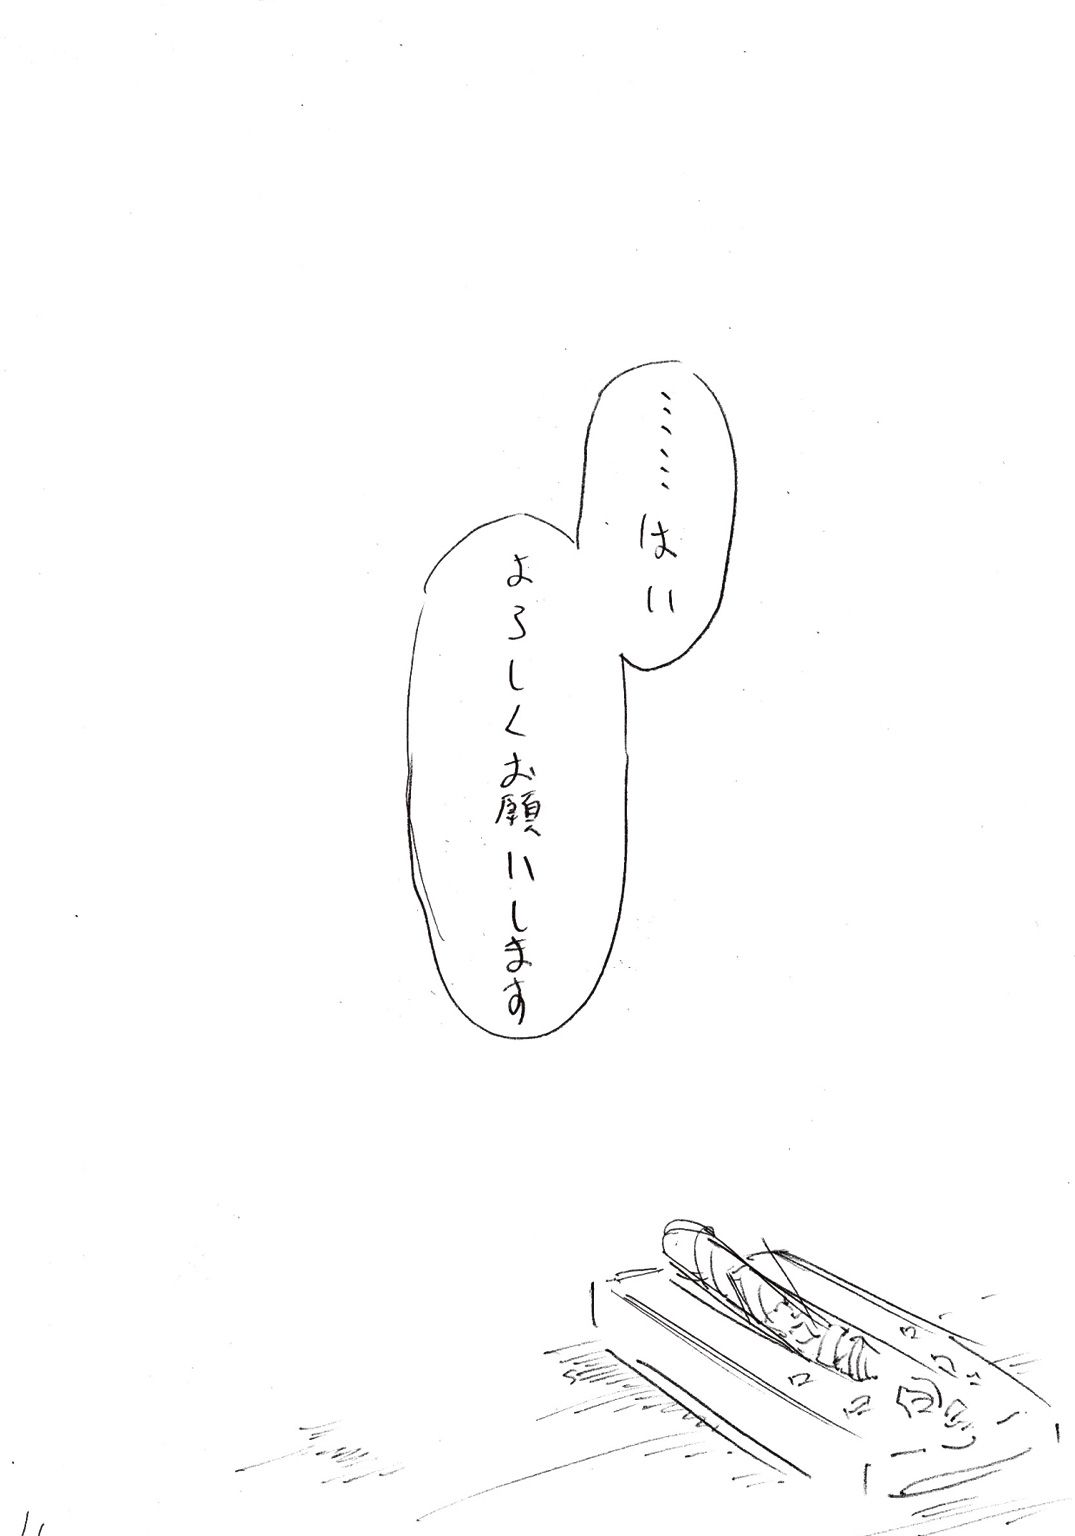 ……はい
よろしくお願いします